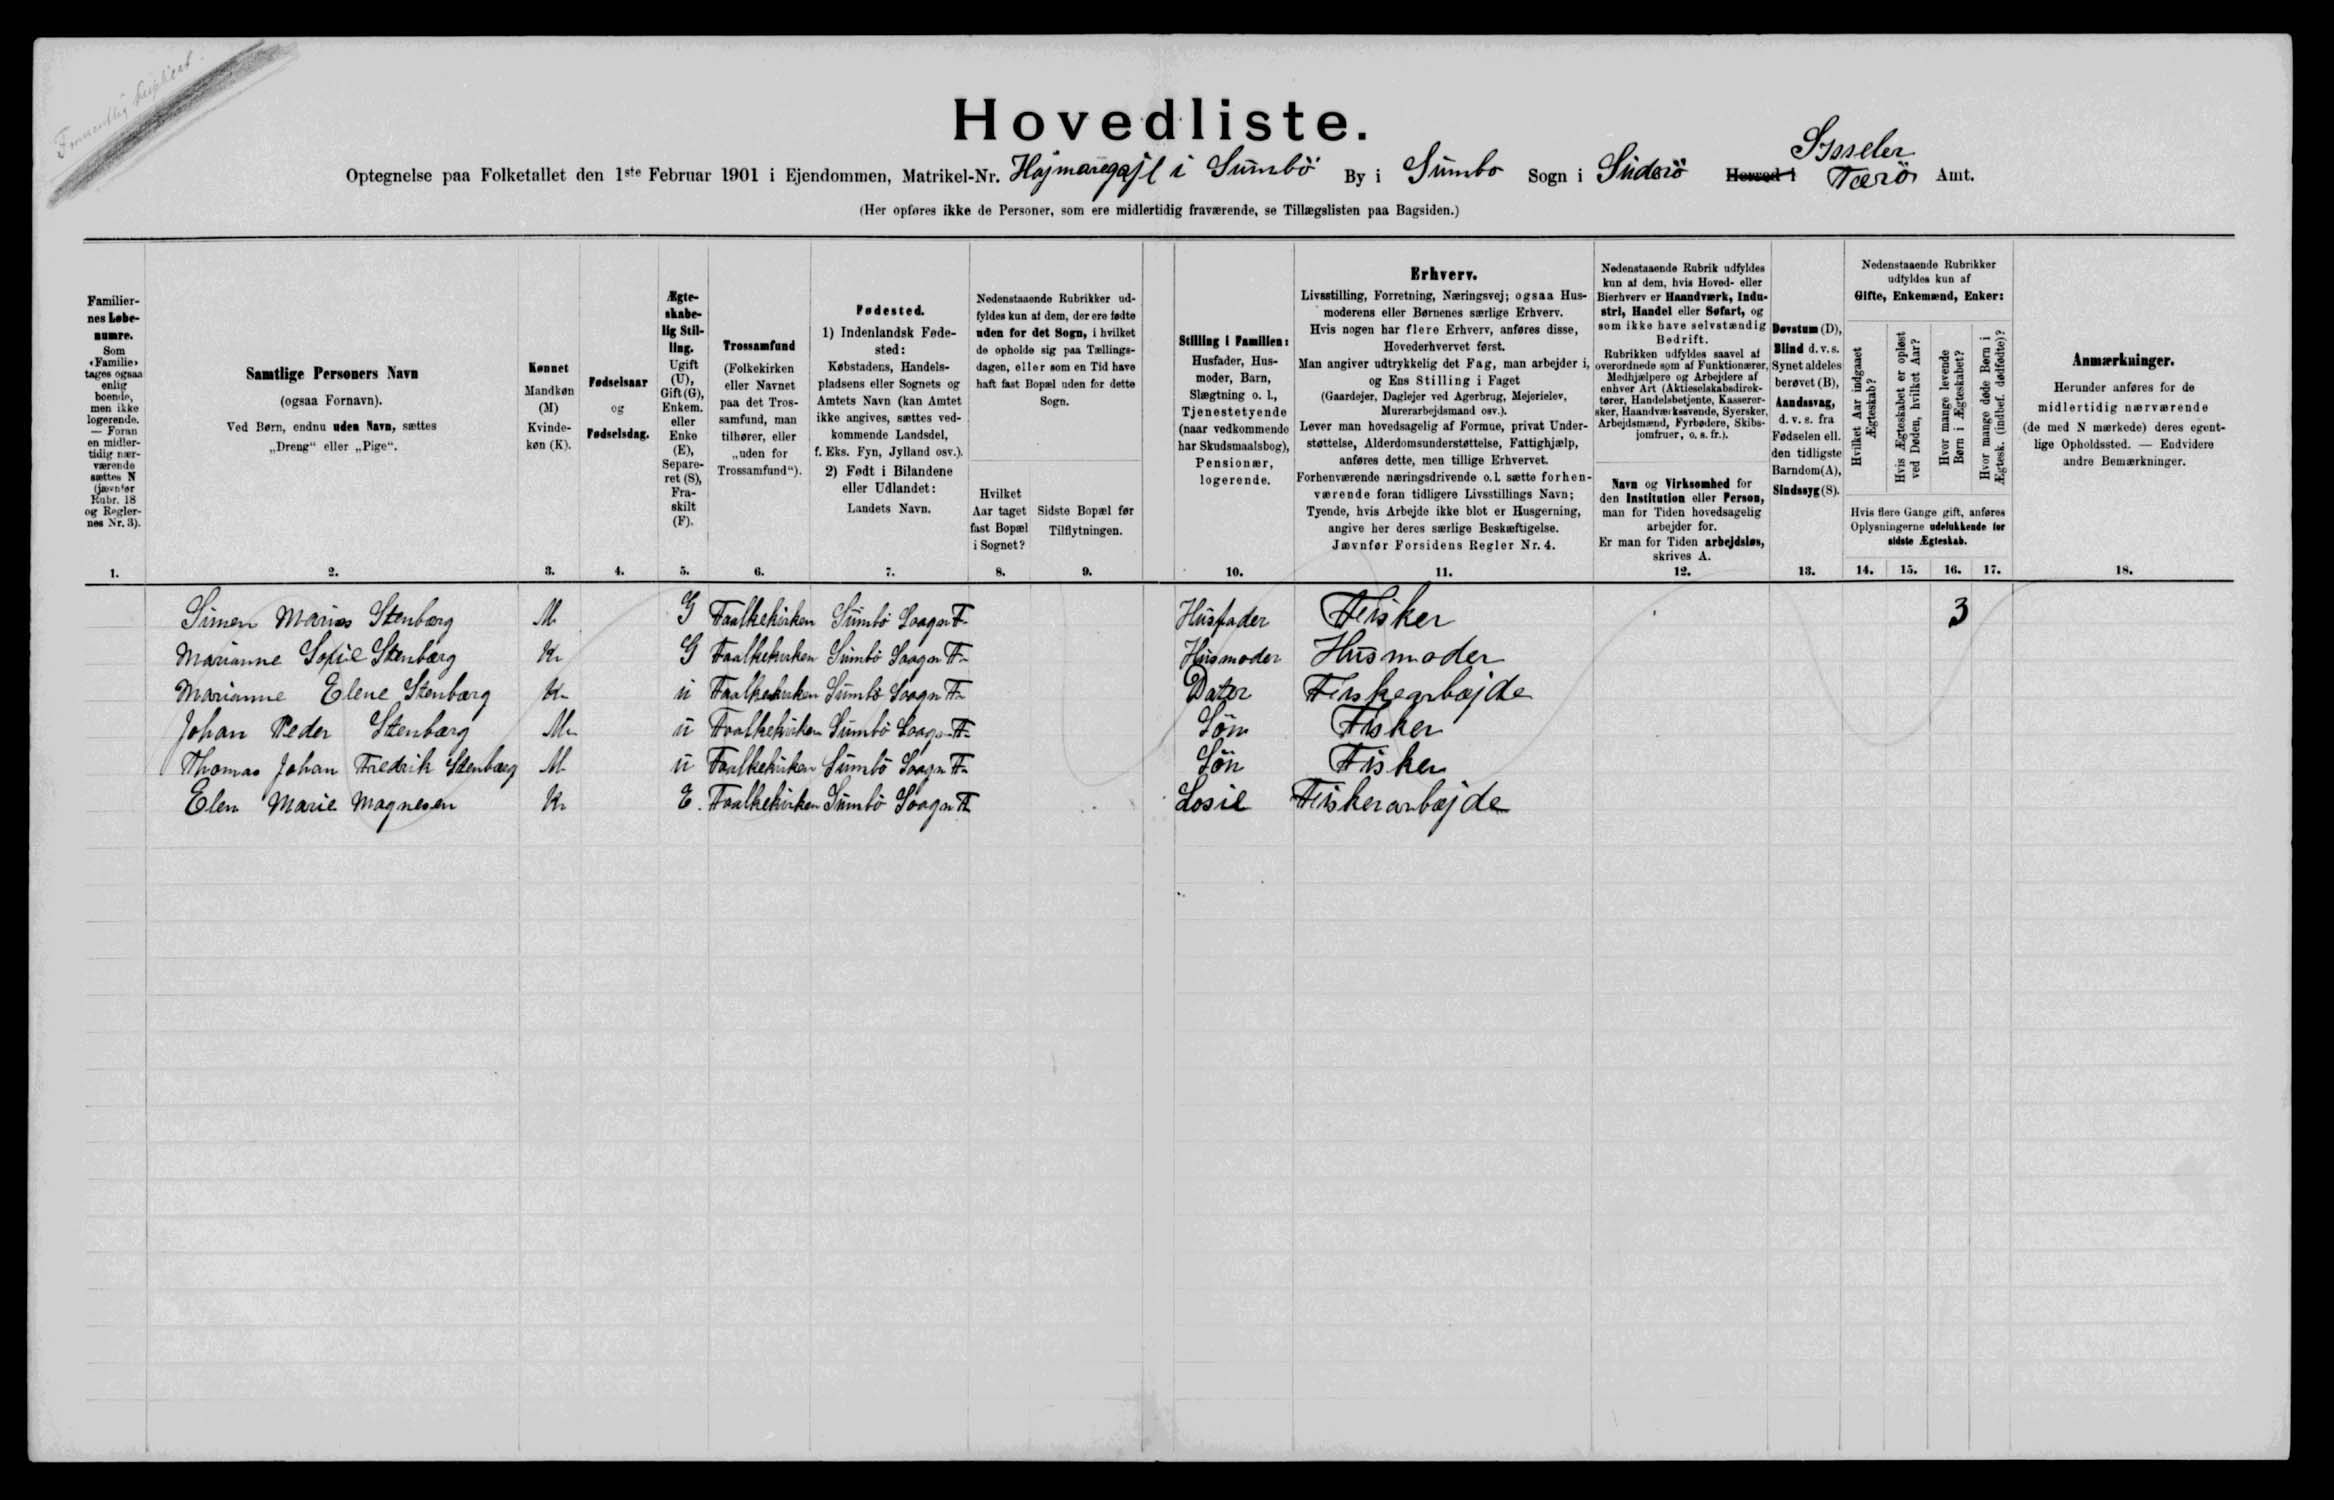 Hovedliste.
Optegnelse paa Folketallet den 1ste Februar 1901 i Ejendommen, Matrikel-Nr. Højmaregajl i Sumbö By i Sumbo Sogn i Süderö Herred i Sysseler Færö Amt.
(Her opføres ikke de Personer, som ere midlertidig fraværende, se Tillægslisten paa Bagsiden.)
Familiernes Løbenumre.
Som «Familie» tages ogsaa enlig boende, men ikke logerende. — Foran en midlertidig nærværende sættes N (jævnfør Rubr. 18 og Reglernes Nr. 3).
Samtlige Personers Navn
(ogsaa Fornavn).
Ved Børn, endnu uden Navn, sættes
„Dreng“ eller „Pige“.
Kønnet
Mandkøn (M)
Kvindekøn (K).
Fødselsaar
og
Fødselsdag.
Ægteskabelig Stilling.
Ugift (U), Gift (G), Enkem. eller Enke (E), Separeret (S), Fraskilt (F).
Trossamfund
(Folkekirken eller Navnet paa det Trossamfund, man tilhører, eller „uden for Trossamfund“).
Fødested.
1) Indenlandsk Fødested:
Købstadens, Handelspladsens eller Sognets og Amtets Navn (kan Amtet ikke angives, sættes vedkommende Landsdel, f. Eks. Fyn, Jylland osv.).
2) Født i Bilandene eller Udlandet:
Landets Navn.
Nedenstaaende Rubrikker udfyldes kun af dem, der ere fødte uden for det Sogn, i hvilket de opholde sig paa Tællingsdagen, eller som en Tid have haft fast Bopæl uden for dette Sogn.
Hvilket Aar taget fast Bopæl i Sognet?
Sidste Bopæl før Tilflytningen.
Stilling i Familien:
Husfader, Husmoder, Barn, Slægtning o. l., Tjenestetyende (naar vedkommende har Skudsmaalsbog), Pensionær, logerende.
Erhverv.
Livsstilling, Forretning, Næringsvej; ogsaa Husmoderens eller Børnenes særlige Erhverv.
Hvis nogen har flere Erhverv, anføres disse, Hovederhvervet først.
Man angiver udtrykkelig det Fag, man arbejder i, og Ens Stilling i Faget
(Gaardejer, Daglejer ved Agerbrug, Mejerielev, Murerarbejdsmand osv.).
Lever man hovedsagelig af Formue, privat Understøttelse, Alderdomsunderstøttelse, Fattighjælp, anføres dette, men tillige Erhvervet.
Forhenværende næringsdrivende o. l. sætte forhenværende foran tidligere Livsstillings Navn;
Tyende, hvis Arbejde ikke blot er Husgerning, angive her deres særlige Beskæftigelse.
Jævnfør Forsidens Regler Nr. 4.
Nedenstaaende Rubrik udfyldes kun af dem, hvis Hoved- eller Bierhverv er Haandværk, Industri, Handel eller Søfart, og som ikke have selvstændig Bedrift.
Rubrikken udfyldes saavel af overordnede som af Funktionærer, Medhjælpere og Arbejdere af enhver Art (Aktieselskabsdirektører, Handelsbetjente, Kasserersker, Haandværkssvende, Syersker, Arbejdsmænd, Fyrbødere, Skibsjomfruer, o. s. fr.).
Navn og Virksomhed for den Institution eller Person, man for Tiden hovedsagelig arbejder for.
Er man for Tiden arbejdsløs, skrives A.
Døvstum (D), Blind d. v. s. Synet aldeles berøvet (B), Aandssvag, d. v. s. fra Fødselen ell. den tidligste Barndom (A), Sindssyg (S).
Nedenstaaende Rubrikker udfyldes kun af
Gifte, Enkemænd, Enker:
Hvilket Aar indgaaet Ægteskab?
Hvis Ægteskabet er opløst ved Døden, hvilket Aar?
Hvor mange levende Børn i Ægteskabet?
Hvor mange døde Børn i Ægtesk. (indbef. dødfødte)?
Hvis flere Gange gift, anføres Oplysningerne udelukkende for sidste Ægteskab.
Anmærkninger.
Herunder anføres for de midlertidig nærværende (de med N mærkede) deres egentlige Opholdssted. — Endvidere andre Bemærkninger.
1. 2. 3. 4. 5. 6. 7. 8. 9. 10. 11. 12. 13. 14. 15. 16. 17. 18.
Simen Marius Stenbærg M G Faalkekirken Sümbö Saagn F Husfader Fisker 3
Marianne Sofie Stenbærg K G Faalkekirken Sümbö Saagn F Husmoder Husmoder
Marianne Elene Stenbærg K u Faalkekirken Sümbö Saagn F Dater Fiskearbæjde
Johan Peder Stenbærg M u Faalkekirken Sümbö Saagn F Sön Fisker
Thomas Johan Fredrik Stenbærg M u Faalkekirken Sümbö Saagn F Sön Fisker
Elen Marie Magnesen K E. Faalkekirken Sümbö Saagn F Losie Fiskerarbæjde